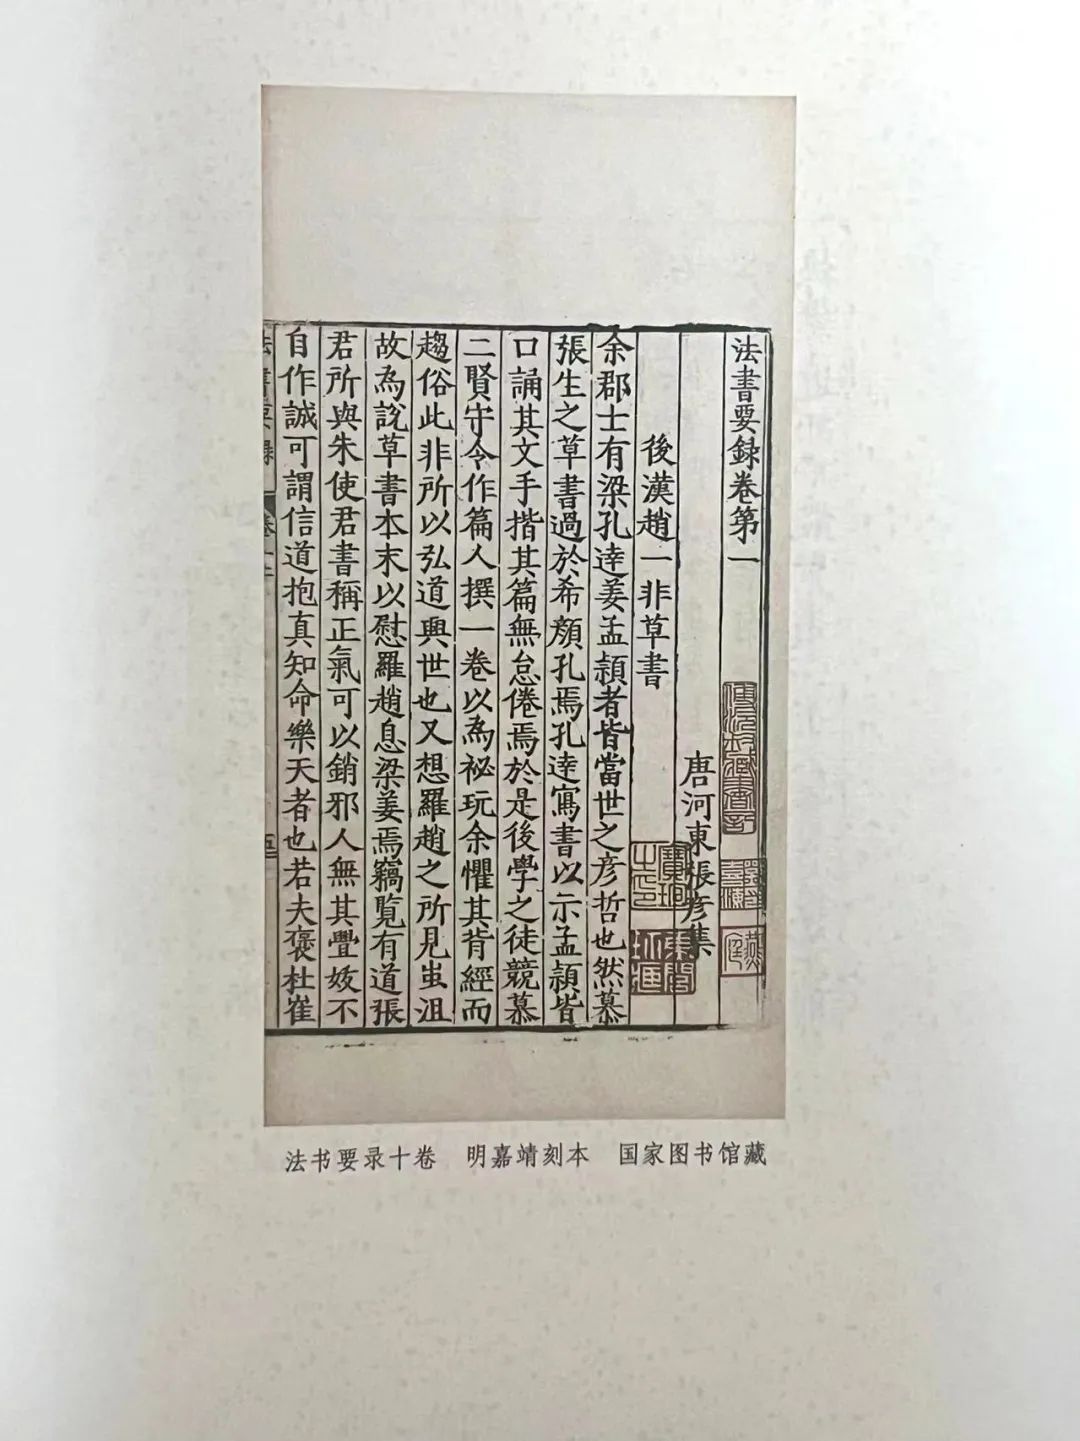 法書要録卷第一
唐河東張彥集
後漢趙一非草書
余郡士有梁孔達姜孟頴者皆當世之彦哲也然慕
張生之草書過於希顏孔焉孔達寫書以示孟頴皆
口誦其文手揩其篇無怠倦焉於是後學之徒競慕
二賢守令作篇人撰一卷以為祕玩余懼其背經而
趨俗此非所以弘道興世也又想羅趙之所見蚩沮
故為說草書本末以慰羅趙息梁姜焉竊覧有道張
君所與朱使君書稱正氣可以銷邪人無其釁妖不
自作誠可謂信道抱真知命樂天者也若夫褒杜崔
法書要録
卷一
法书要录十卷 明嘉靖刻本 国家图书馆藏